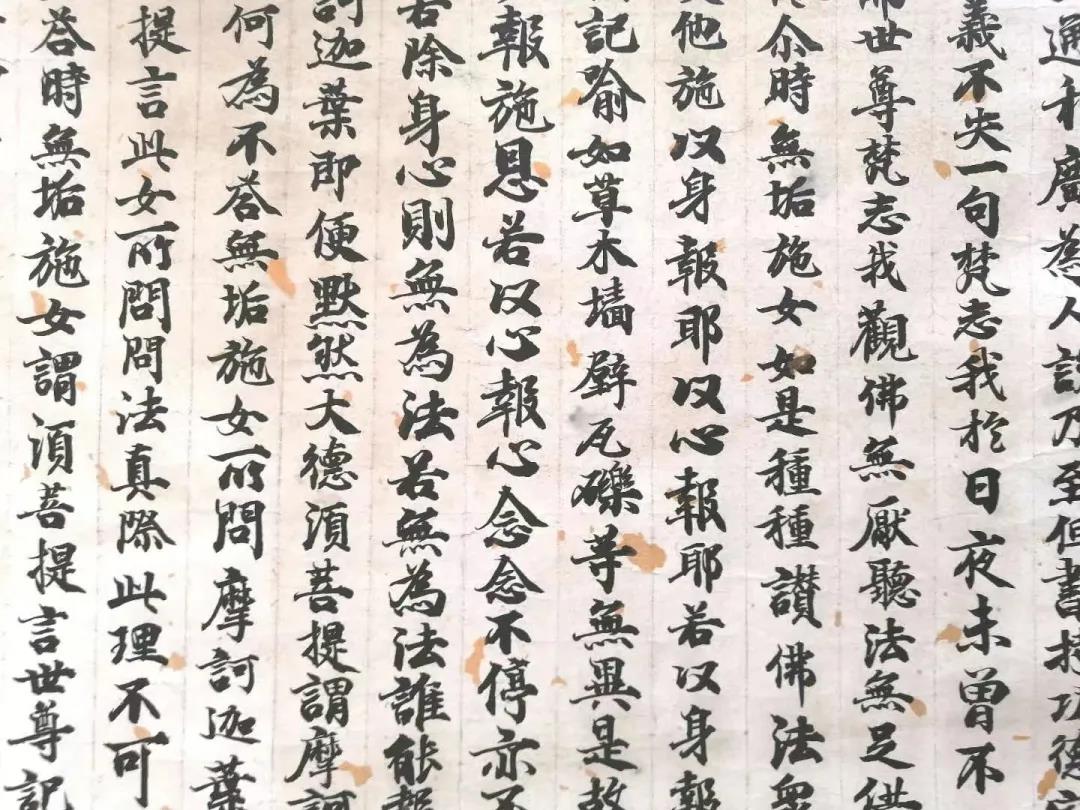 通利廣為人說乃至但書持功德
義不失一句梵志我於日夜未曾不
世尊梵志我觀佛無厭聽法無足供
尒時無垢施女如是種種讃佛法衆
他施以身報耶以心報耶若以身報
記喻如草木墻壁瓦礫等無異是故
報施恩若以心報心念念不停亦不
若除身心則無為法若無為法誰能報
訶迦葉即便默然大德湏菩提謂摩訶
何為不荅無垢施女所問摩訶迦葉
提言此女所問問法真際此理不可
荅時無垢施女謂湏菩提言世尊記